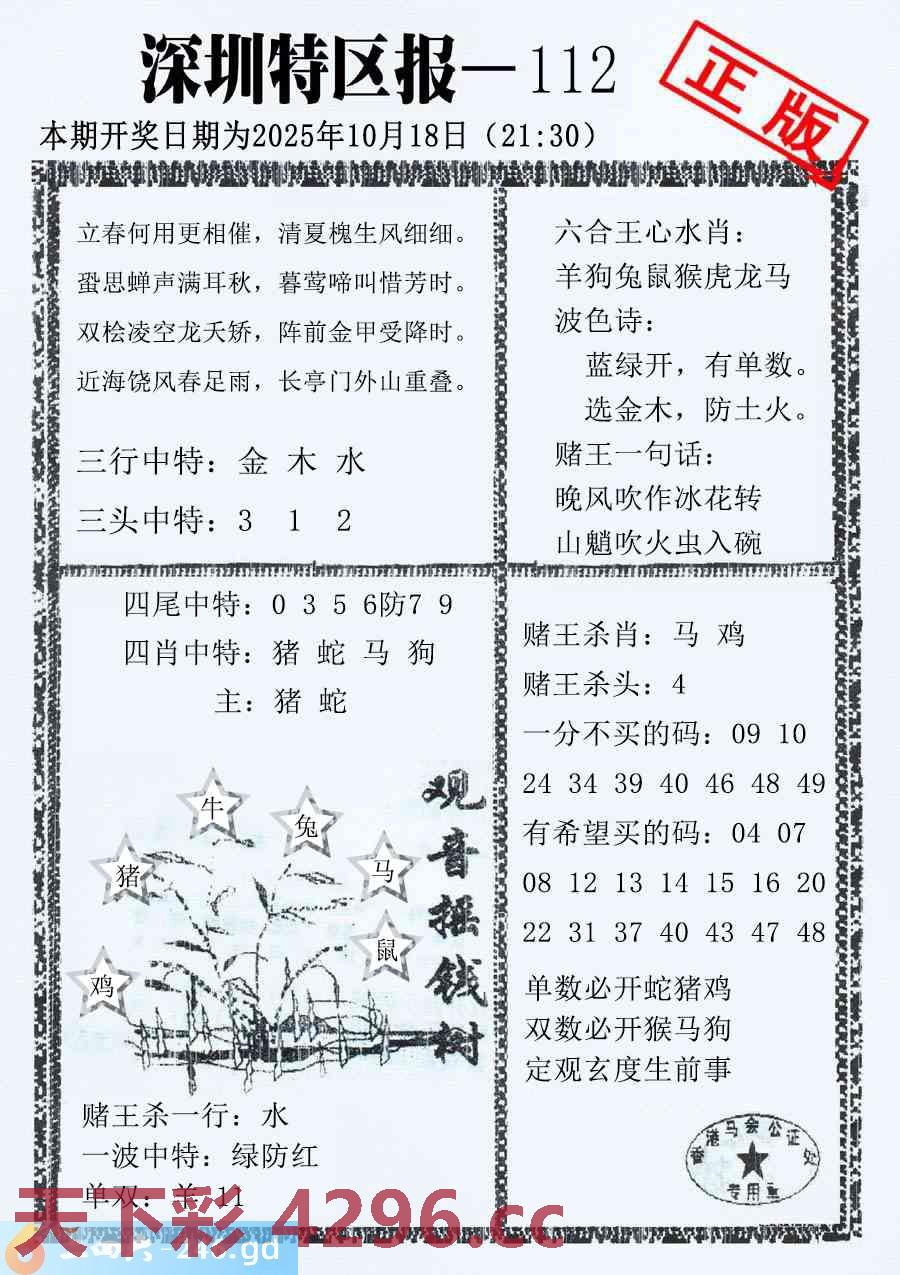 深圳特区报—112
正版
本期开奖日期为2025年10月18日（21:30）
立春何用更相催，清夏槐生风细细。
蛩思蝉声满耳秋，暮莺啼叫惜芳时。
双桧凌空龙夭矫，阵前金甲受降时。
近海饶风春足雨，长亭门外山重叠。
三行中特：金 木 水
三头中特：3 1 2
六合王心水肖：
羊狗兔鼠猴虎龙马
波色诗：
蓝绿开，有单数。
选金木，防土火。
赌王一句话：
晚风吹作冰花转
山魈吹火虫入碗
四尾中特：0 3 5 6防7 9
四肖中特：猪 蛇 马 狗
主：猪 蛇
牛
兔
猪
马
鼠
鸡
观音摇钱树
赌王杀一行：水
一波中特：绿防红
单双：羊 11
赌王杀肖：马 鸡
赌王杀头：4
一分不买的码：09 10
24 34 39 40 46 48 49
有希望买的码：04 07
08 12 13 14 15 16 20
22 31 37 40 43 47 48
单数必开蛇猪鸡
双数必开猴马狗
定观玄度生前事
香港马会公证处
专用章
天下彩 4296.cc